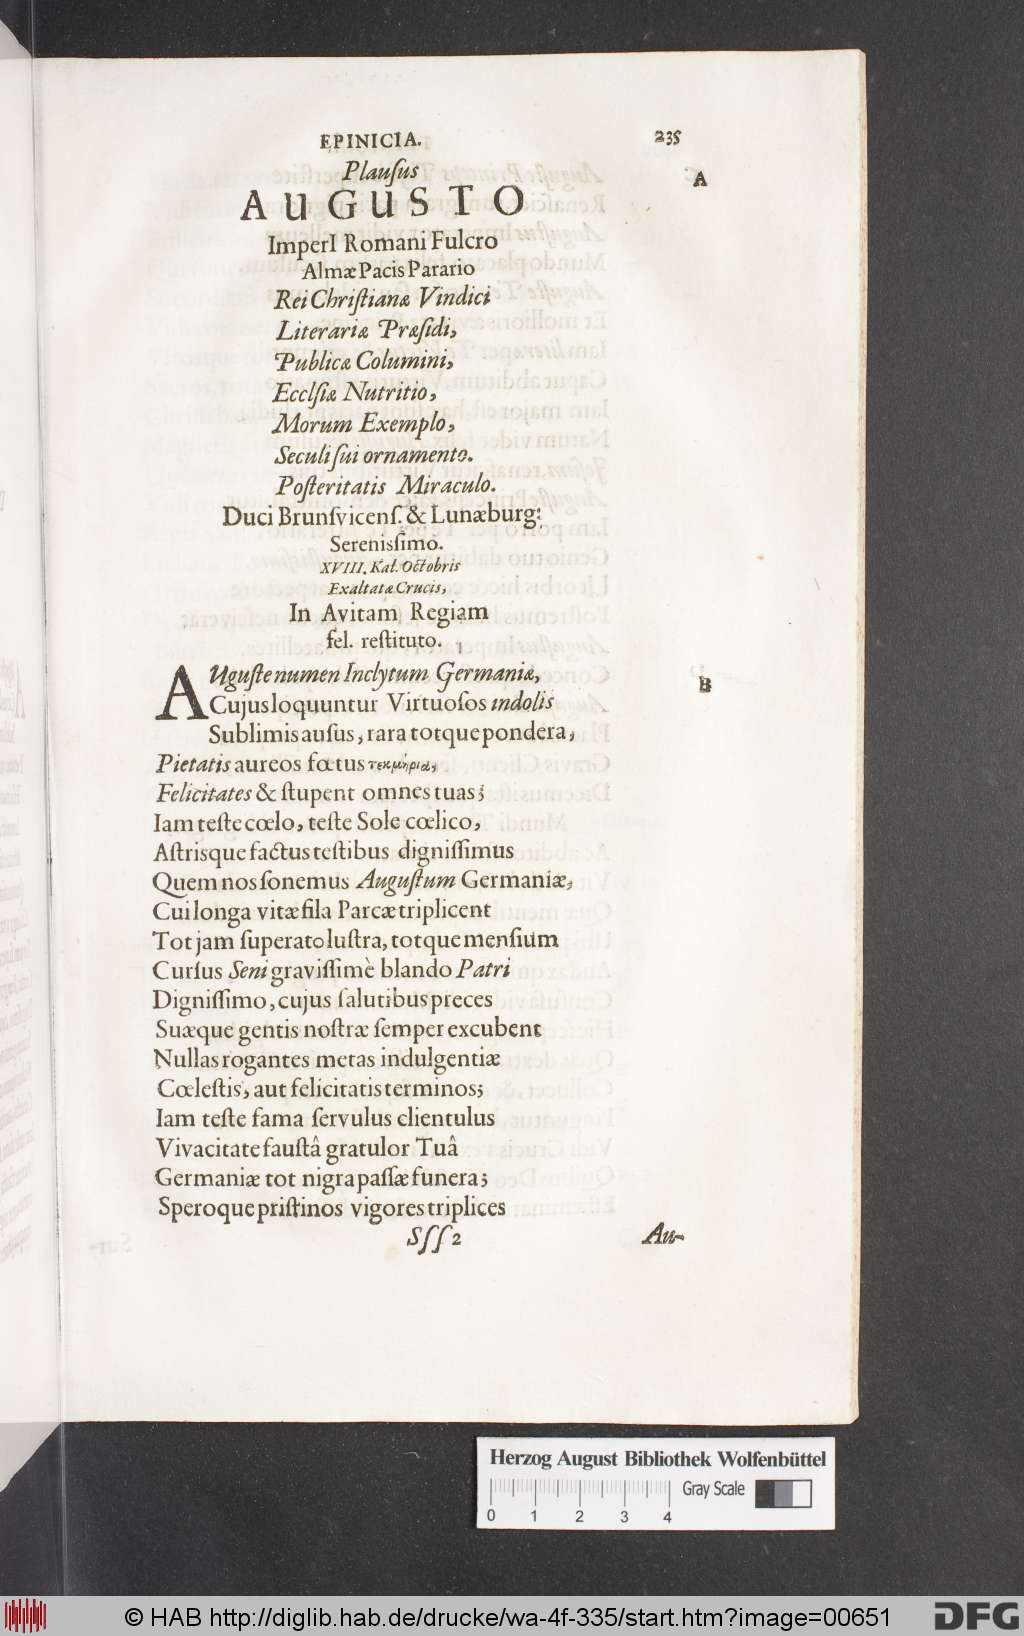 EPINICIA. 235
Plauſus
A
AUGUSTO
ImperI Romani Fulcro
Almæ Pacis Parario
Rei Chriſtianæ Vindici
Literariæ Præſidi,
Publicæ Columini,
Ecclſiæ Nutritio,
Morum Exemplo,
Seculi ſui ornamento.
Poſteritatis Miraculo.
Duci Brunſvicenſ. & Lunæburg:
Sereniſſimo.
XVIII. Kal. Octobris
Exaltatæ Crucis,
In Avitam Regiam
fel. reſtituto.
AUguſte numen Inclytum Germaniæ,
B
Cujus loquuntur Virtuoſos indolis
Sublimis auſus, rara totque pondera,
Pietatis aureos fœtus τεκμήρια,
Felicitates & ſtupent omnes tuas;
Iam teſte cœlo, teſte Sole cœlico,
Aſtrisque factus teſtibus digniſſimus
Quem nos ſonemus Auguſtum Germaniæ,
Cui longa vitæ fila Parcæ triplicent
Tot jam ſuperato luſtra, totque menſium
Curſus Seni graviſſimè blando Patri
Digniſſimo, cujus ſalutibus preces
Suæque gentis noſtræ ſemper excubent
Nullas rogantes metas indulgentiæ
Cœleſtis, aut felicitatis terminos;
Iam teſte fama ſervulus clientulus
Vivacitate fauſtâ gratulor Tuâ
Germaniæ tot nigra paſſæ funera;
Speroque priſtinos vigores triplices
Sſſ 2 Au-
Herzog August Bibliothek Wolfenbüttel
Gray Scale
0 1 2 3 4
© HAB http://diglib.hab.de/drucke/wa-4f-335/start.htm?image=00651 DFG